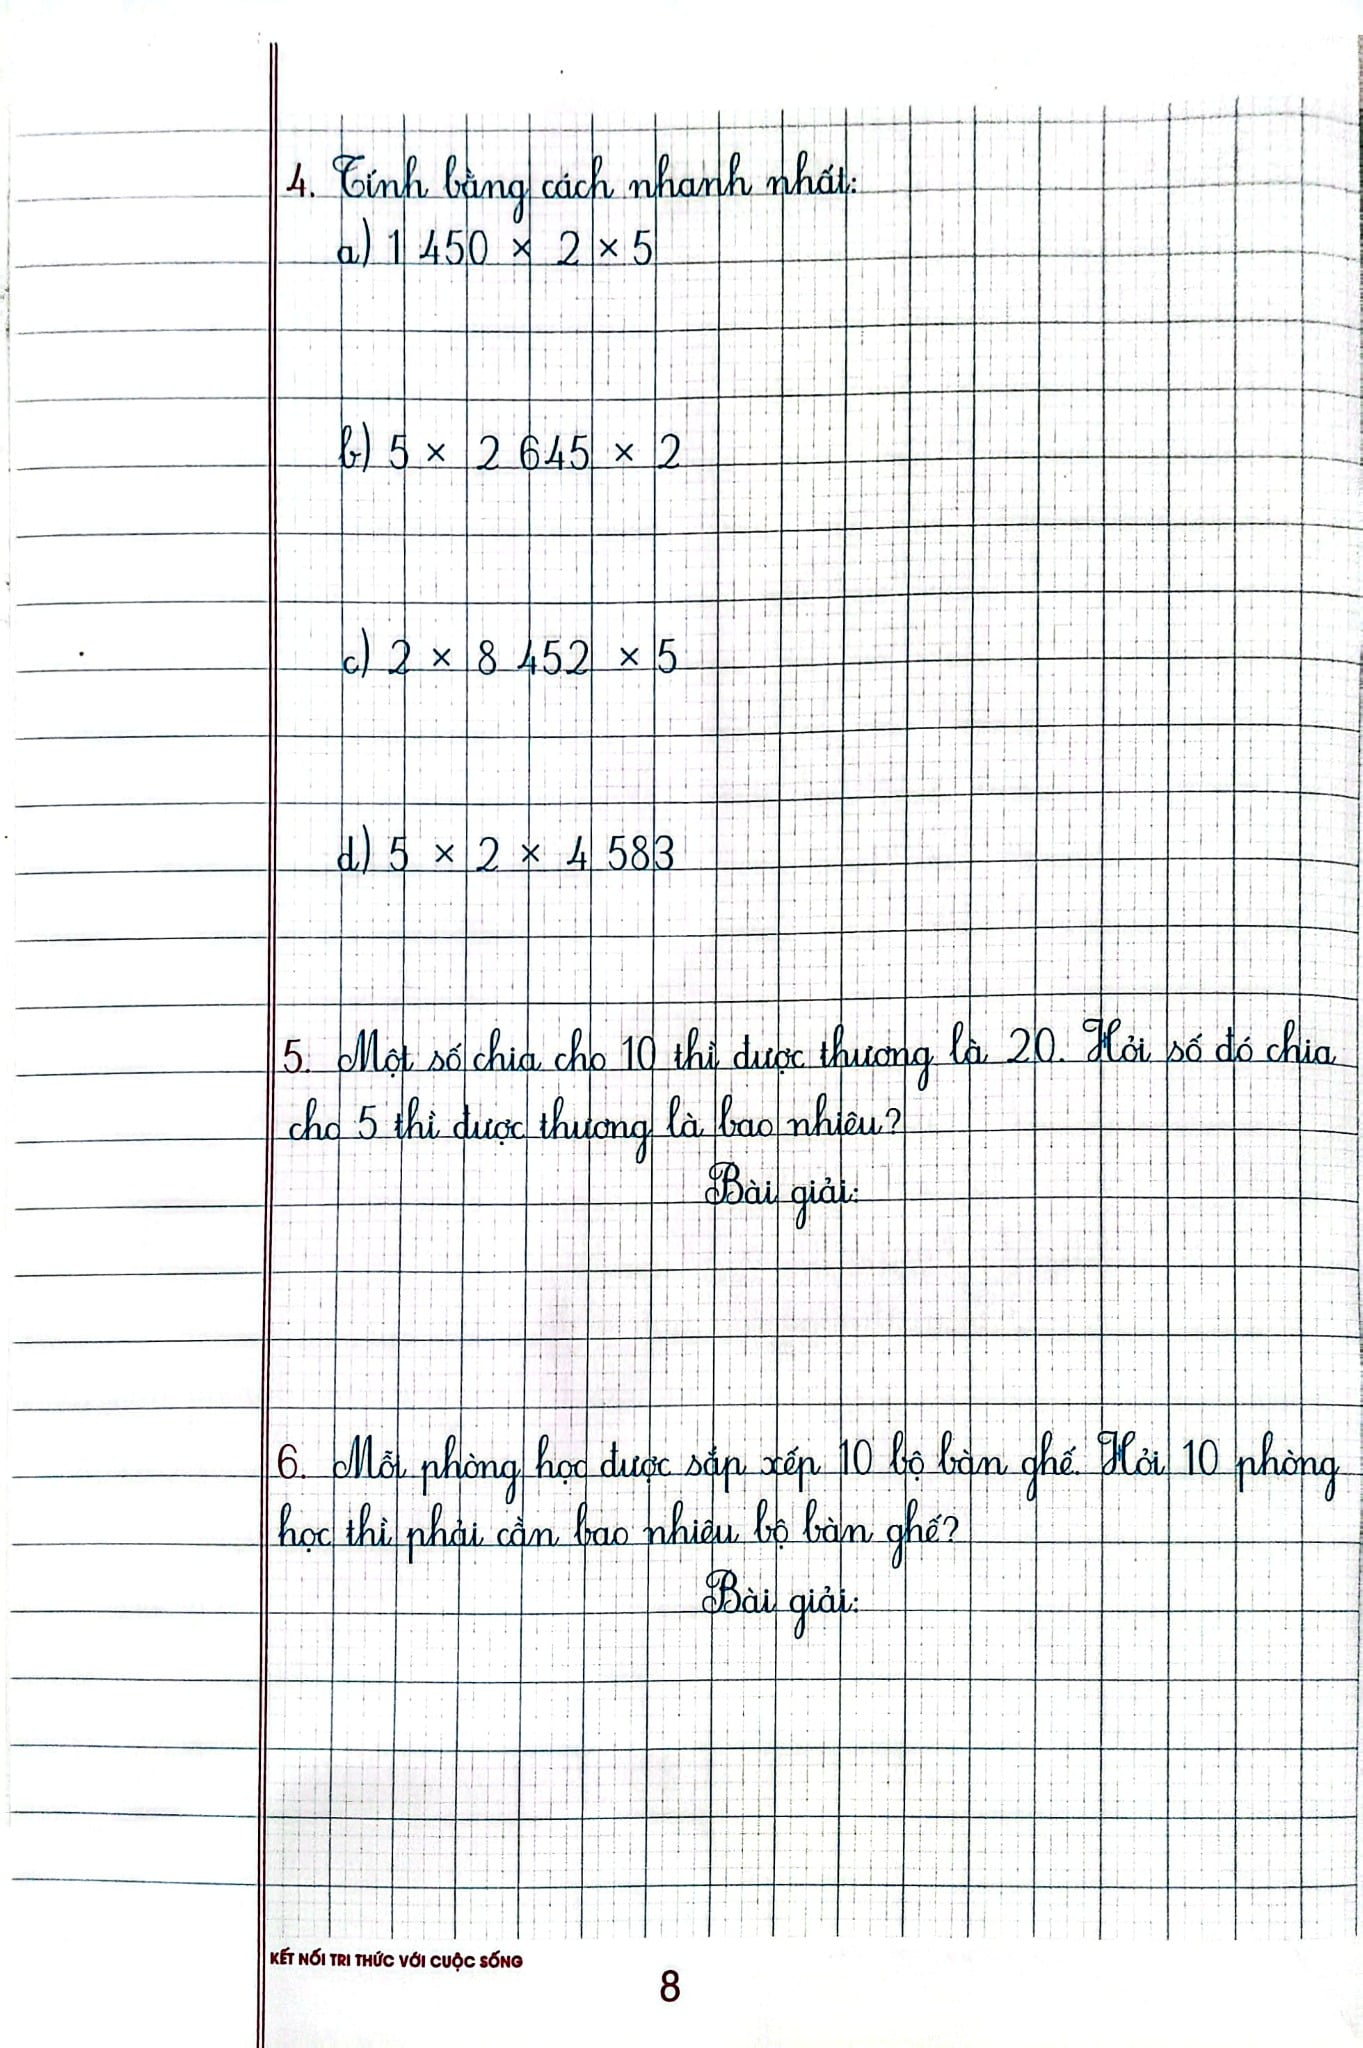 4. Tính bằng cách nhanh nhất:
a) 1 450 × 2 × 5
b) 5 × 2 645 × 2
c) 2 × 8 452 × 5
d) 5 × 2 × 4 583
5. Một số chia cho 10 thì được thương là 20. Hỏi số đó chia
cho 5 thì được thương là bao nhiêu?
Bài giải:
6. Mỗi phòng học được sắp xếp 10 bộ bàn ghế. Hỏi 10 phòng
học thì phải cần bao nhiêu bộ bàn ghế?
Bài giải:
KẾT NỐI TRI THỨC VỚI CUỘC SỐNG
8